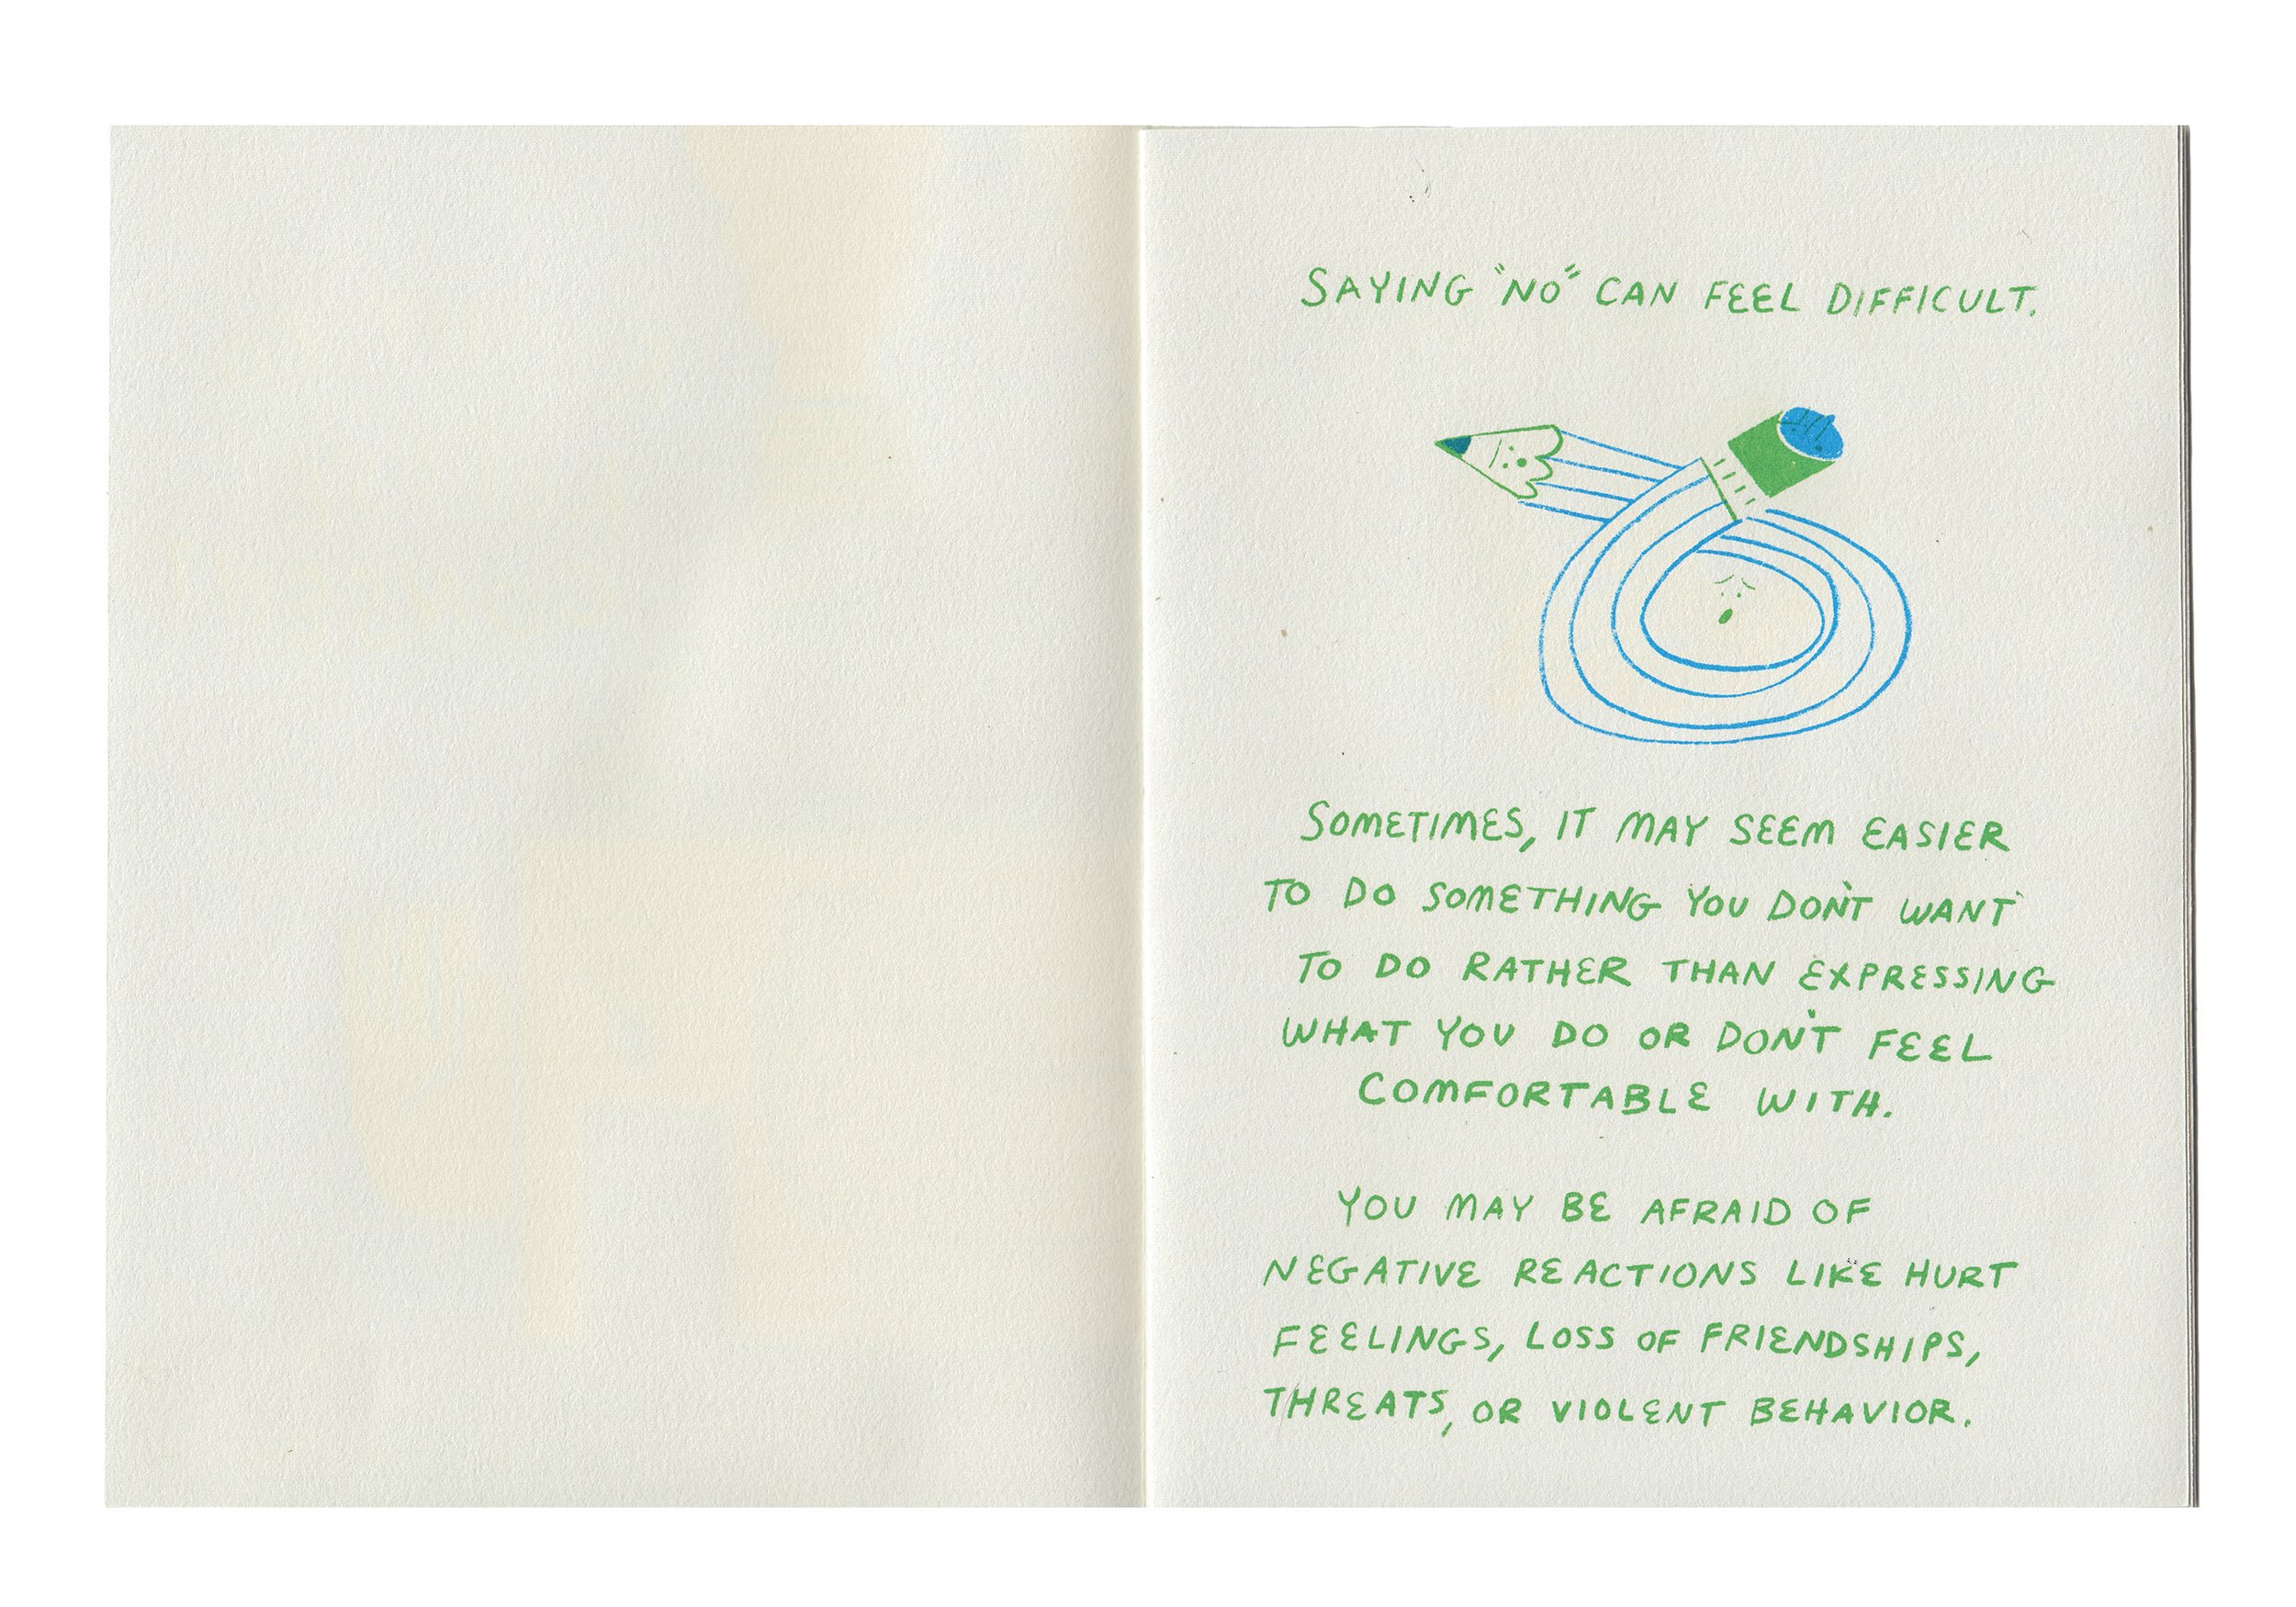 SAYING "NO" CAN FEEL DIFFICULT.
SOMETIMES, IT MAY SEEM EASIER
TO DO SOMETHING YOU DON'T WANT
TO DO RATHER THAN EXPRESSING
WHAT YOU DO OR DON'T FEEL
COMFORTABLE WITH.
YOU MAY BE AFRAID OF
NEGATIVE REACTIONS LIKE HURT
FEELINGS, LOSS OF FRIENDSHIPS,
THREATS, OR VIOLENT BEHAVIOR.